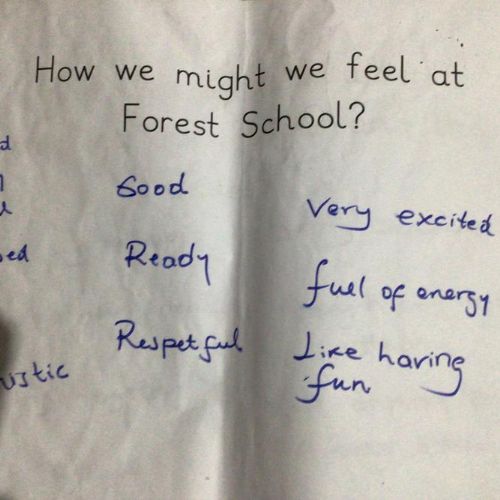 How we might we feel at
Forest School?
Good
Ready
Respetful
Very excited
fuel of energy
Like having
fun